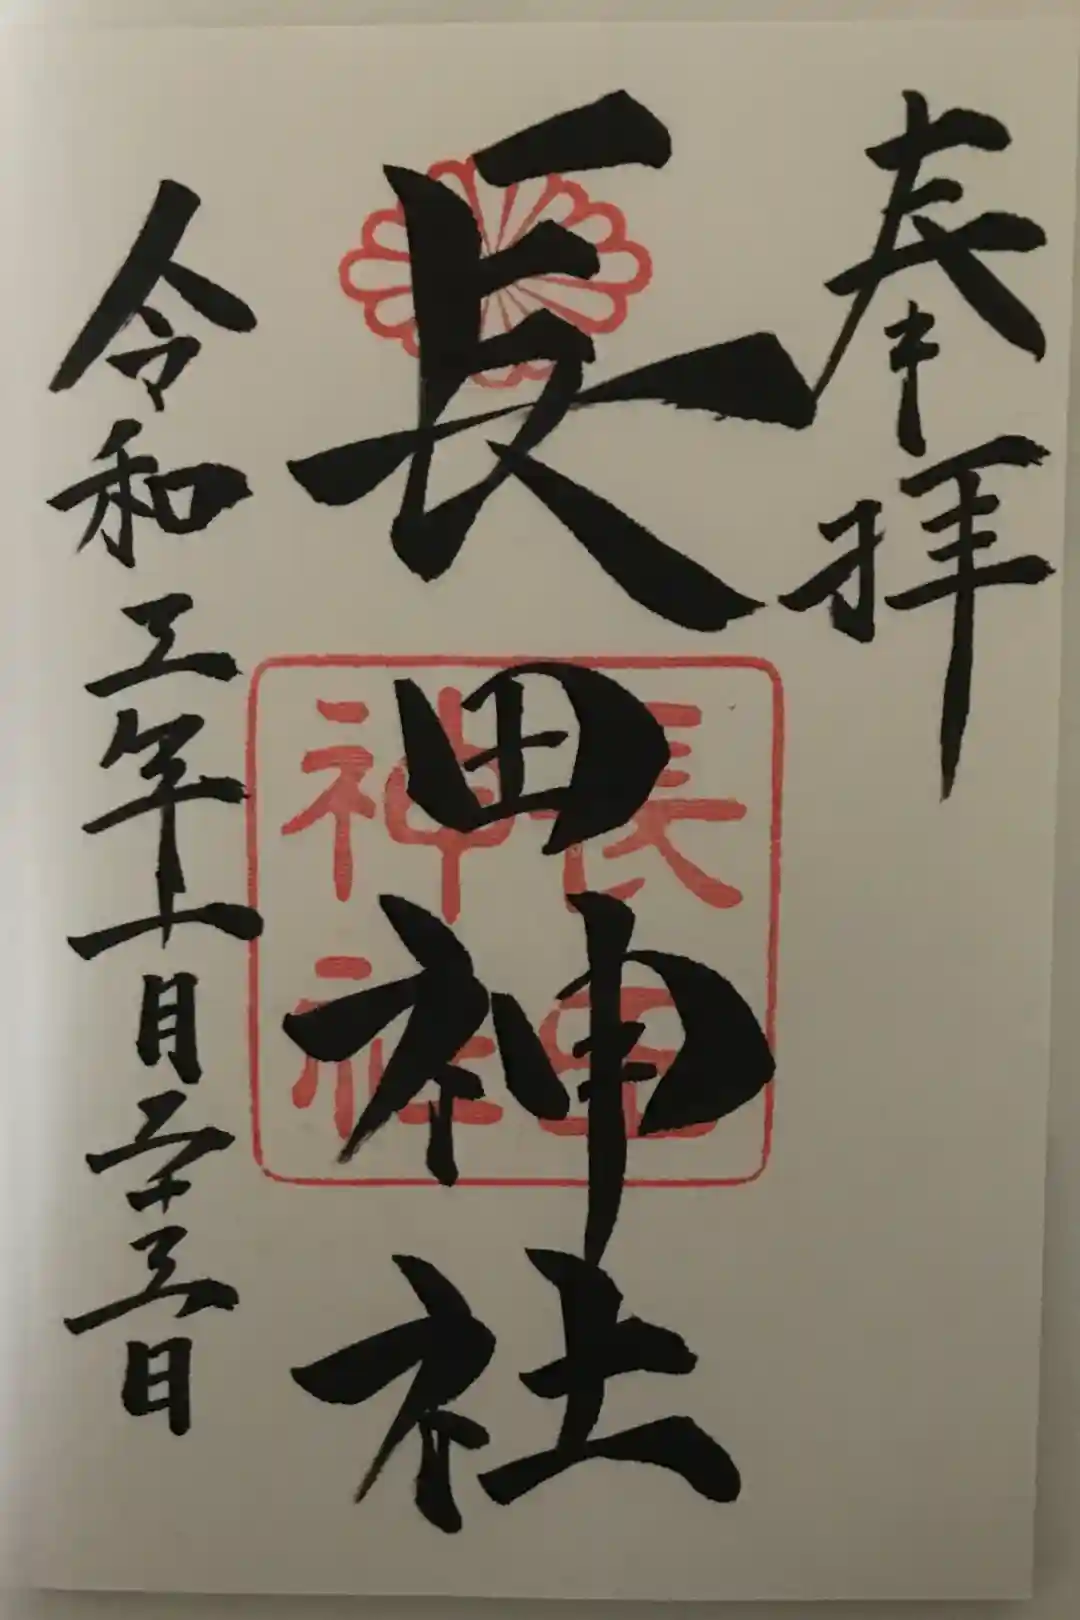 奉拝
長田神社
長田
神社
令和三年十月二十三日